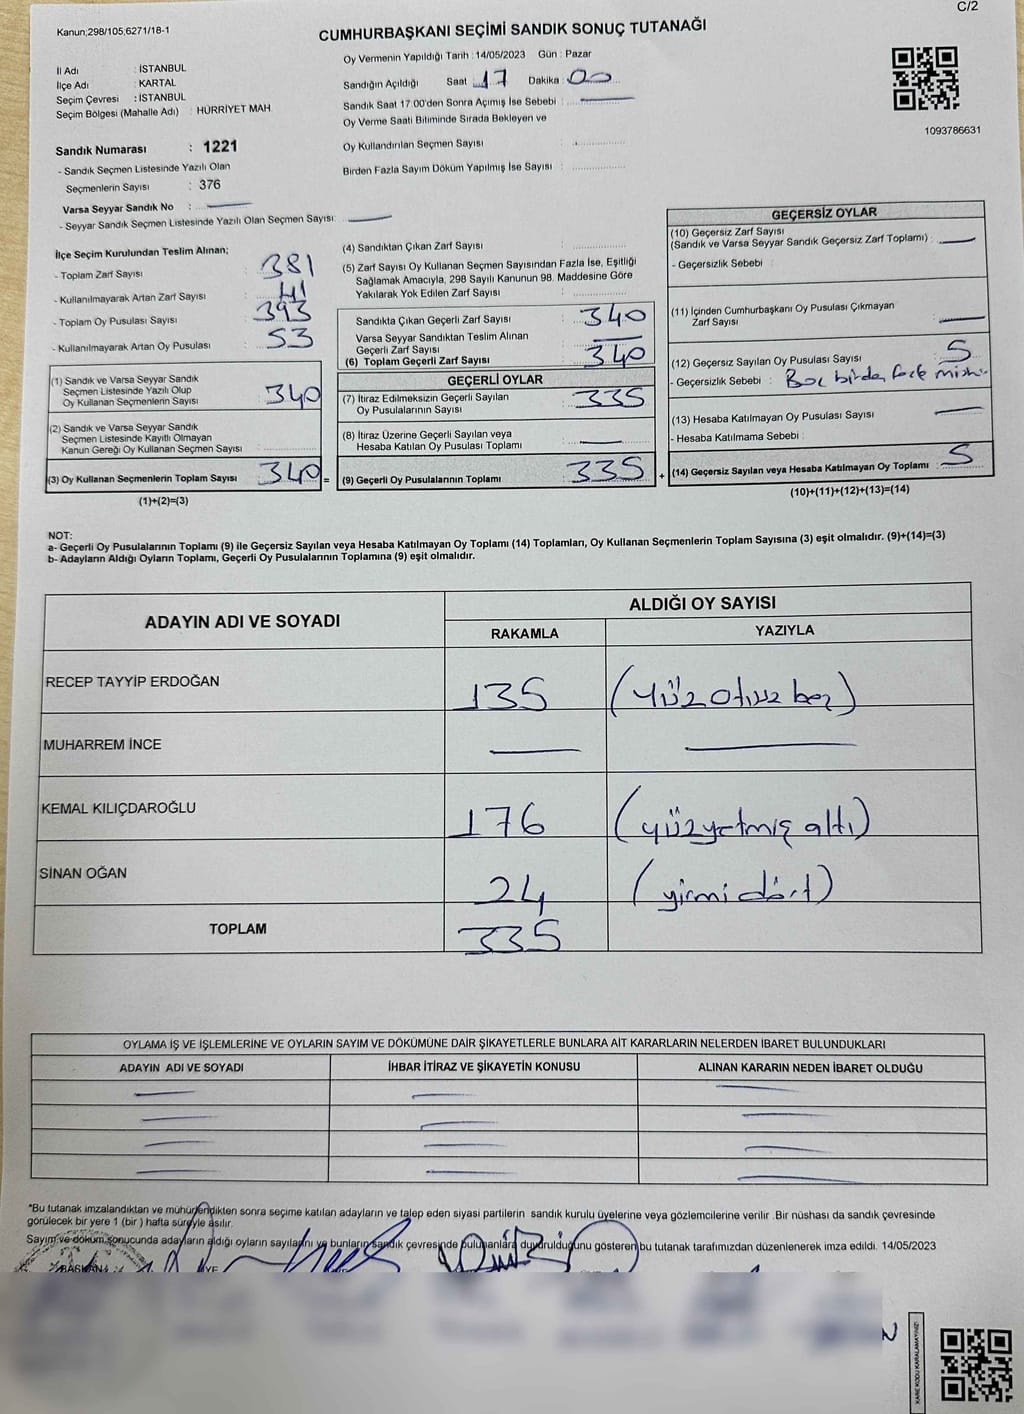 C/2
Kanun;298/105,6271/18-1
CUMHURBAŞKANI SEÇİMİ SANDIK SONUÇ TUTANAĞI
İl Adı : İSTANBUL
İlçe Adı : KARTAL
Seçim Çevresi : İSTANBUL
Seçim Bölgesi (Mahalle Adı) : HÜRRİYET MAH
Sandık Numarası : 1221
- Sandık Seçmen Listesinde Yazılı Olan
Seçmenlerin Sayısı : 376
Varsa Seyyar Sandık No :
- Seyyar Sandık Seçmen Listesinde Yazılı Olan Seçmen Sayısı:
Oy Vermenin Yapıldığı Tarih : 14/05/2023 Gün : Pazar
Sandığın Açıldığı Saat 17 Dakika : 00
Sandık Saat 17.00'den Sonra Açımış İse Sebebi :
Oy Verme Saati Bitiminde Sırada Bekleyen ve
Oy Kullandırılan Seçmen Sayısı :
Birden Fazla Sayım Döküm Yapılmış İse Sayısı :
1093786631
İlçe Seçim Kurulundan Teslim Alınan;
- Toplam Zarf Sayısı : 381
- Kullanılmayarak Artan Zarf Sayısı : 41
- Toplam Oy Pusulası Sayısı : 393
- Kullanılmayarak Artan Oy Pusulası : 53
(1) Sandık ve Varsa Seyyar Sandık
Seçmen Listesinde Yazılı Olup
Oy Kullanan Seçmenlerin Sayısı : 340
(2) Sandık ve Varsa Seyyar Sandık
Seçmen Listesinde Kayıtlı Olmayan
Kanun Gereği Oy Kullanan Seçmen Sayısı :
(3) Oy Kullanan Seçmenlerin Toplam Sayısı : 340 =
(1)+(2)=(3)
(4) Sandıktan Çıkan Zarf Sayısı :
(5) Zarf Sayısı Oy Kullanan Seçmen Sayısından Fazla İse, Eşitliği
Sağlamak Amacıyla, 298 Sayılı Kanunun 98. Maddesine Göre
Yakılarak Yok Edilen Zarf Sayısı :
Sandıkta Çıkan Geçerli Zarf Sayısı : 340
Varsa Seyyar Sandıktan Teslim Alınan
Geçerli Zarf Sayısı :
(6) Toplam Geçerli Zarf Sayısı : 340
GEÇERLİ OYLAR
(7) İtiraz Edilmeksizin Geçerli Sayılan
Oy Pusulalarının Sayısı : 335
(8) İtiraz Üzerine Geçerli Sayılan veya
Hesaba Katılan Oy Pusulası Toplamı :
(9) Geçerli Oy Pusulalarının Toplamı : 335 +
GEÇERSİZ OYLAR
(10) Geçersiz Zarf Sayısı
(Sandık ve Varsa Seyyar Sandık Geçersiz Zarf Toplamı) :
- Geçersizlik Sebebi :
(11) İçinden Cumhurbaşkanı Oy Pusulası Çıkmayan
Zarf Sayısı :
(12) Geçersiz Sayılan Oy Pusulası Sayısı : 5
- Geçersizlik Sebebi :
(13) Hesaba Katılmayan Oy Pusulası Sayısı :
- Hesaba Katılmama Sebebi :
(14) Geçersiz Sayılan veya Hesaba Katılmayan Oy Toplamı : 5
(10)+(11)+(12)+(13)=(14)
NOT:
a- Geçerli Oy Pusulalarının Toplamı (9) ile Geçersiz Sayılan veya Hesaba Katılmayan Oy Toplamı (14) Toplamları, Oy Kullanan Seçmenlerin Toplam Sayısına (3) eşit olmalıdır. (9)+(14)=(3)
b- Adayların Aldığı Oyların Toplamı, Geçerli Oy Pusulalarının Toplamına (9) eşit olmalıdır.
ADAYIN ADI VE SOYADI
ALDIĞI OY SAYISI
RAKAMLA YAZIYLA
RECEP TAYYİP ERDOĞAN 135 (yüz otuz beş)
MUHARREM İNCE
KEMAL KILIÇDAROĞLU 176 (yüzyetmiş altı)
SİNAN OĞAN 24 (yirmi dört)
TOPLAM 335
OYLAMA İŞ VE İŞLEMLERİNE VE OYLARIN SAYIM VE DÖKÜMÜNE DAİR ŞİKAYETLERLE BUNLARA AİT KARARLARIN NELERDEN İBARET BULUNDUKLARI
ADAYIN ADI VE SOYADI İHBAR İTİRAZ VE ŞİKAYETİN KONUSU ALINAN KARARIN NEDEN İBARET OLDUĞU
*Bu tutanak imzalandıktan ve mühürlendikten sonra seçime katılan adayların ve talep eden siyasi partilerin sandık kurulu üyelerine veya gözlemcilerine verilir .Bir nüshası da sandık çevresinde
görülecek bir yere 1 (bir ) hafta süreyle asılır.
Sayım ve döküm sonucunda adayların aldığı oyların sayılarını ve bunların sandık çevresinde bulunanlara duyurulduğunu gösteren bu tutanak tarafımızdan düzenlenerek imza edildi. 14/05/2023
BAŞKAN
KARE KODU KARALAMAYINIZ!